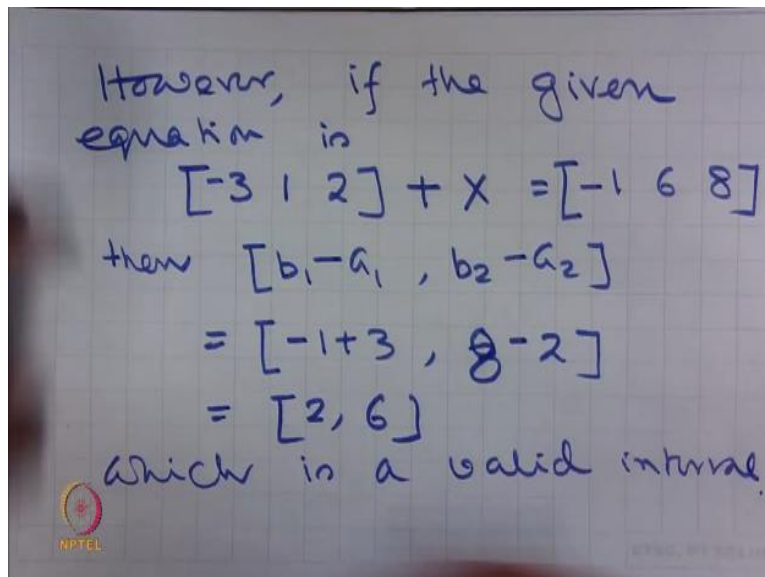 However, if the given
equation is
[-3 1 2] + X = [-1 6 8]
then [b₁-a₁ , b₂-a₂]
= [-1+3 , 8-2]
= [2, 6]
which is a valid interval.
NPTEL